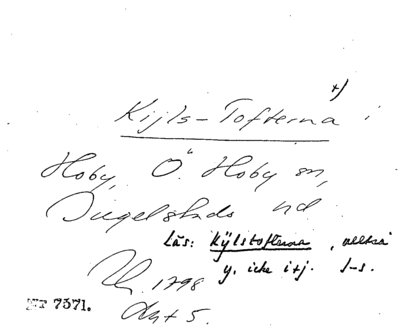 +)
Kijls-Tofterna i
Hoby, Ö. Hoby sn,
Ingelstads hd
Läs: Kÿlstofterna, alltså
y. icke i+j. I-s.
1798
Akt 5.
NT 7571.